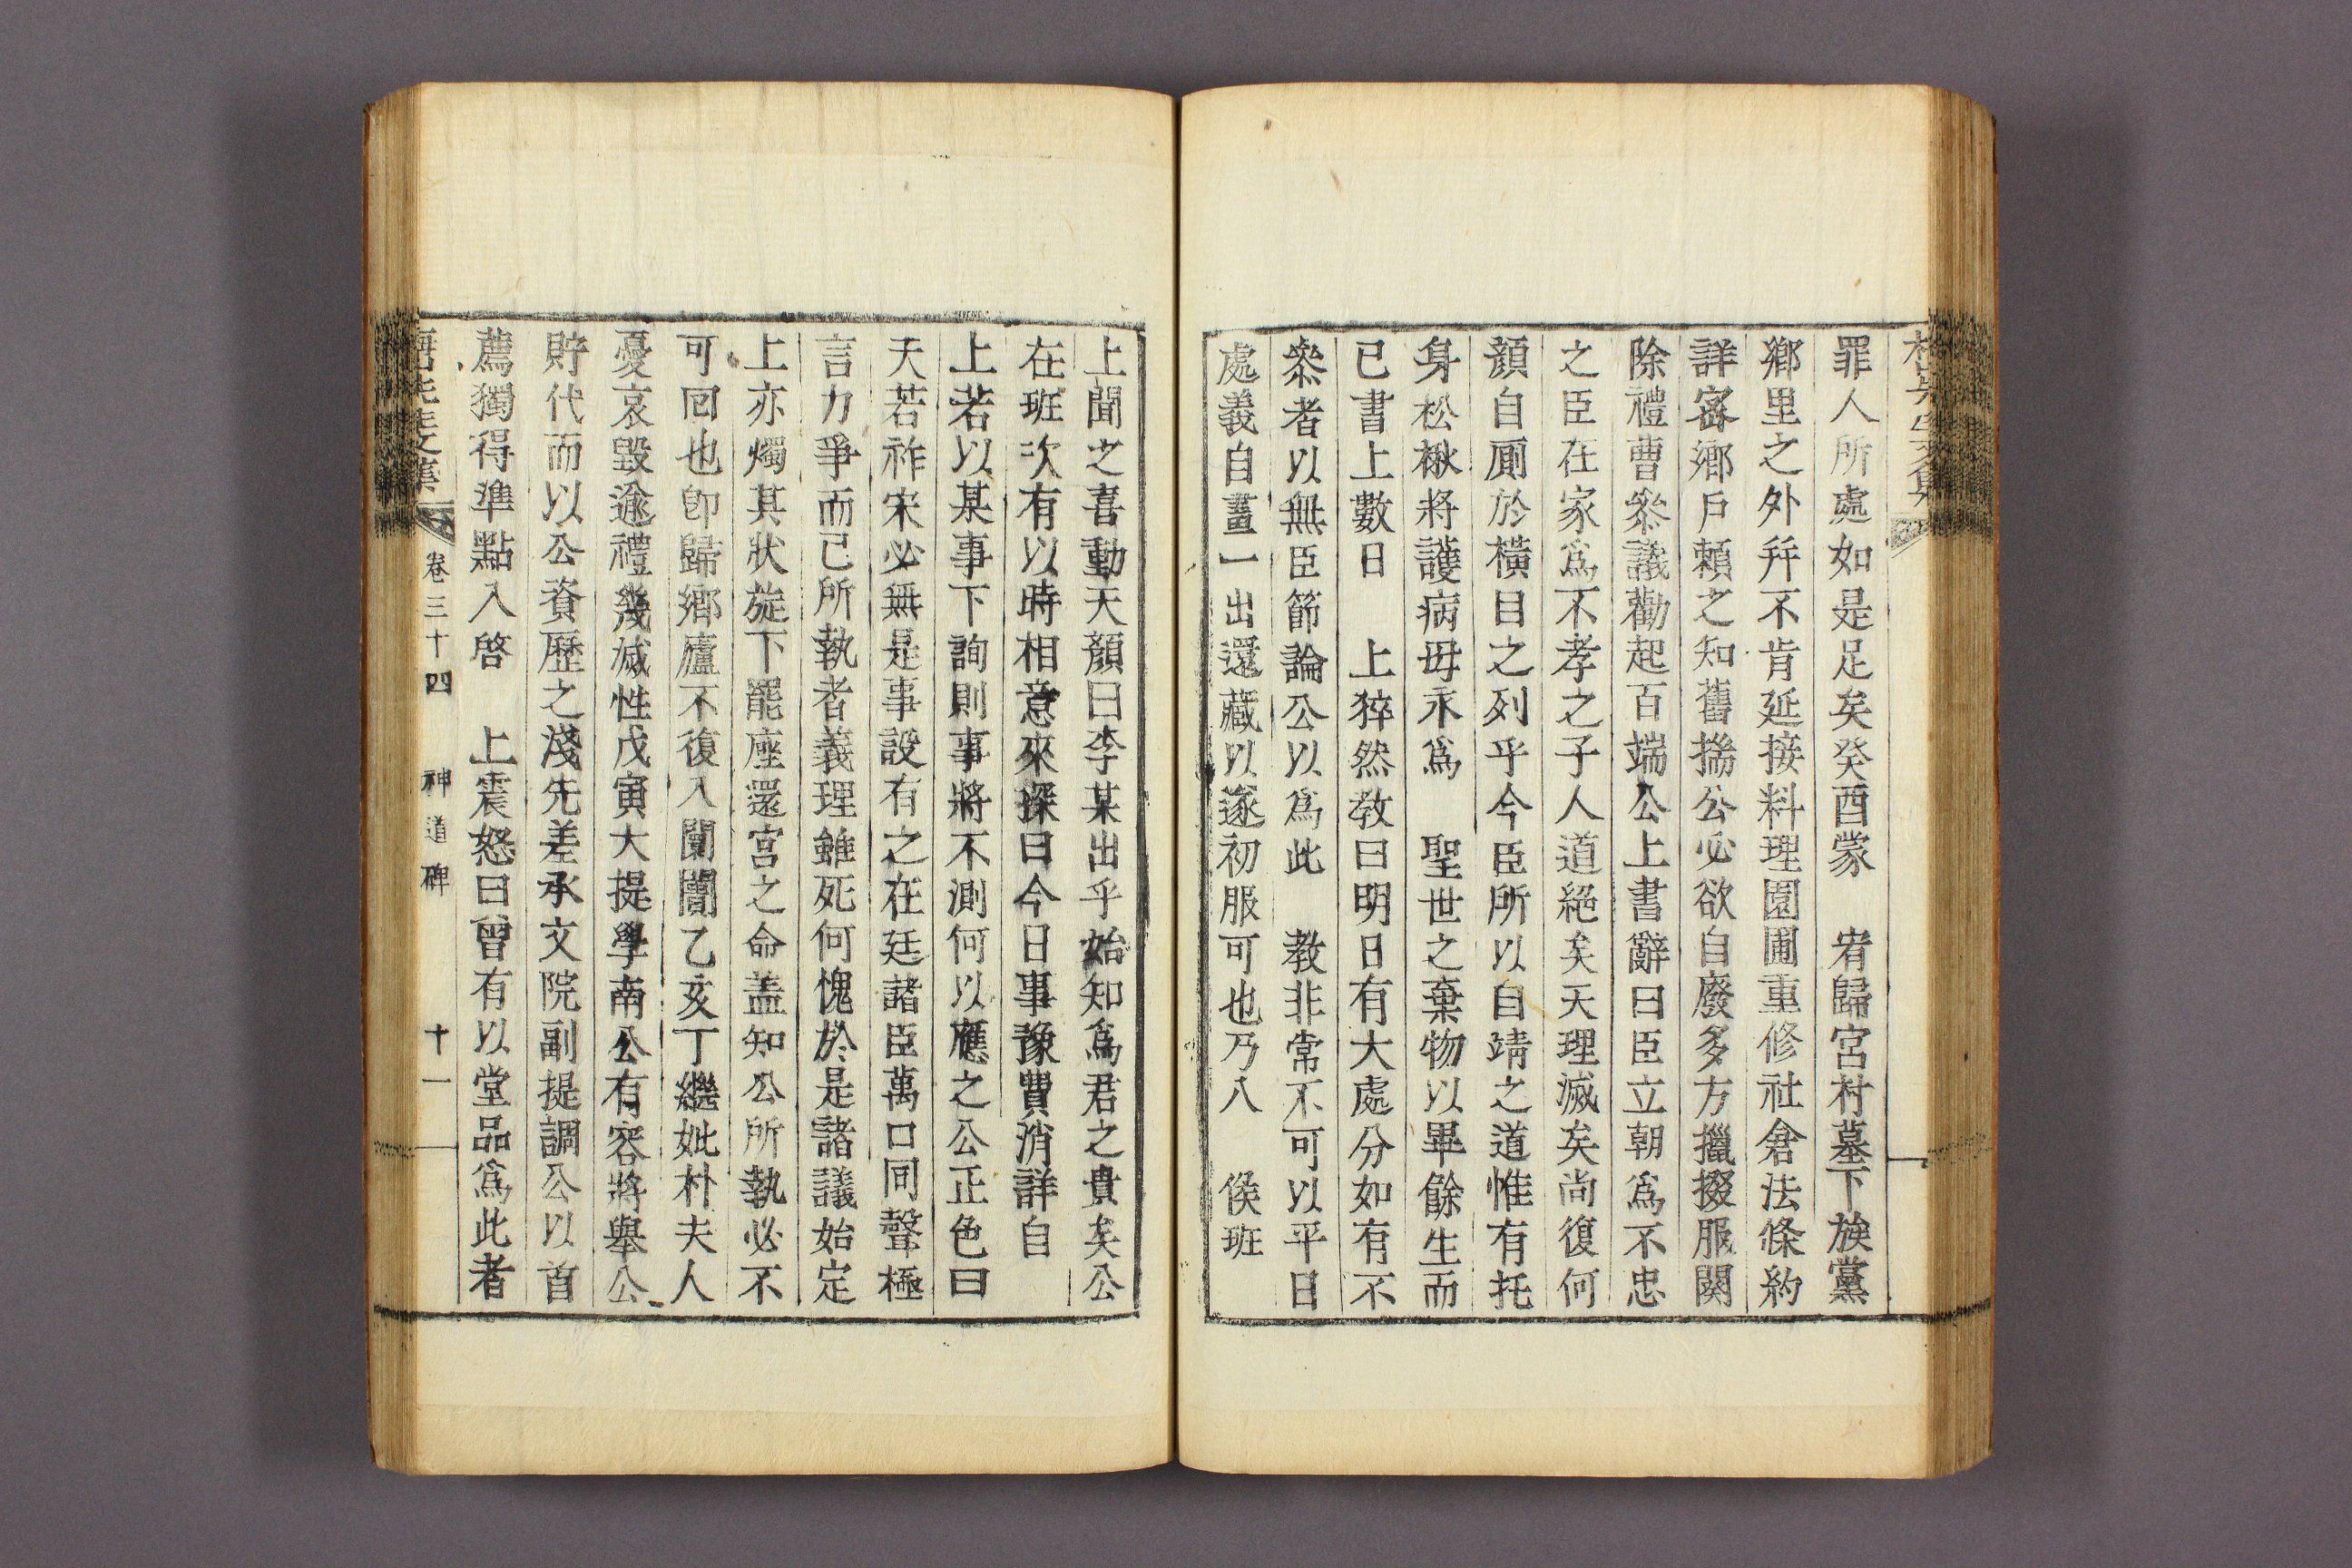 罪人所處如是足矣癸酉蒙　宥歸宮村墓下族黨
鄉里之外幷不肯延接料理園圃重修社倉法條約
詳密鄉戶賴之知舊揣公必欲自廢多方攛掇服闋
除禮曹參議勸起百端公上書辭曰臣立朝爲不忠
之臣在家爲不孝之子人道絕矣天理滅矣尚復何
顏自厠於橫目之列乎今臣所以自靖之道惟有托
身松楸將護病毋永爲　聖世之棄物以畢餘生而
已書上數日　上猝然教曰明日有大處分如有不
叅者以無臣節論公以爲此　教非常不可以平日
處義自畫一出還藏以遂初服可也乃入　候班
上聞之喜動天顏曰李某出乎始知爲君之貴矣公
在班次有以時相意來探曰今日事豫費消詳自
上若以某事下詢則事將不測何以應之公正色曰
天若祚宋必無是事設有之在廷諸臣萬口同聲極
言力爭而已所執者義理雖死何愧於是諸議始定
上亦燭其狀旋下罷座還宮之命盖知公所執必不
可回也卽歸鄉廬不復入闉闍乙亥丁繼妣朴夫人
憂哀毀逾禮幾滅性戊寅大提學南公有容將舉公
貯代而以公資歷之淺先差承文院副提調公以首
薦獨得準點入啓　上震怒曰曾有以堂品爲此者
先生文集　卷三十四　神道碑　十一